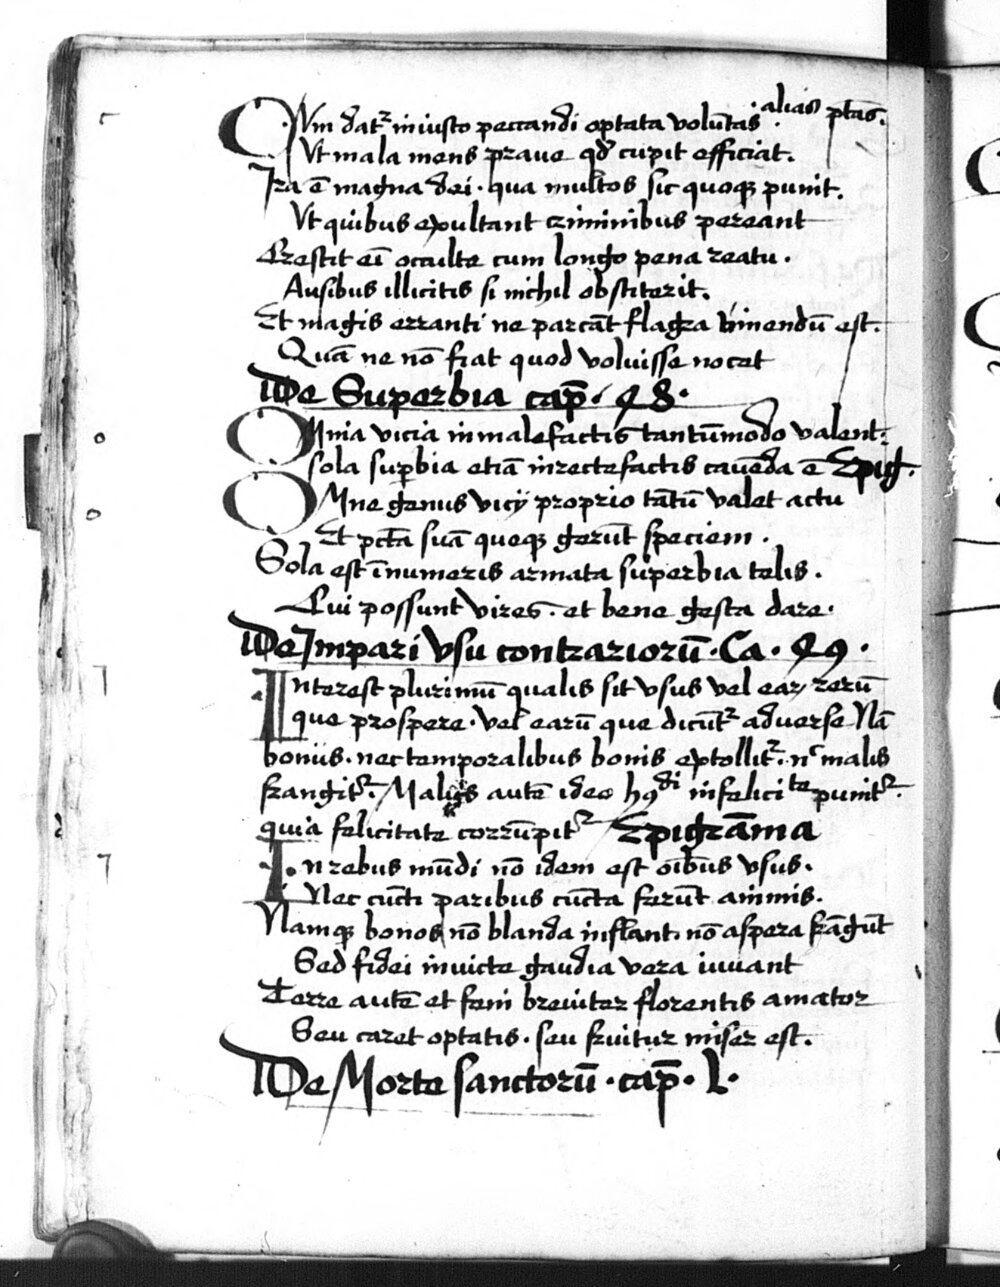 CVm dat᷑ iniusto peccandi optata volūtas · alias ptās.
Vt mala mens praue qd̄ cupit efficiat.
Ira ē magna dei · qua multos sic quoqꝫ punit.
Vt quibus exultant criminibus pereant
Crescit eī occulte cum longo pena reatu ·
Ausibus illicitis si nichil obstiterit.
Et magis erranti ne parcāt flagra timendū est.
Quā ne nō fiat quod voluisse nocet
De Superbia cap̄ · 48 ·
OMnia vicia in malefactis tantūmodo valent:
sola superbia etiā in rectefactis cauēda ē Epiḡ.
OMne genus vicij proprio tātū valet actu
Et pctā suā queqꝫ gerūt speciem .
Sola est īnumeris armata superbia telis .
Cui possunt vires · et bene gesta dare ·
De Impari vsu contrariorū · Ca · 49 ·
Interest plurimū qualis sit vsus vel earꝝ rerū
que prospere · vel earū que dicūt᷑ aduerse Nā
bonus · nec temporalibus bonis extollit᷑ · nᶜ malis
frangit᷑. Malus autē ideo hꝰdi infelicitᵗᵉ punit᷑.
quia felicitate corrūpit᷑ Epigrāma
In rebus mūdi nō idem est oībus vsus ·
Nec cūcti paribus cūcta ferūt animis.
Namqꝫ bonos nō blanda inflant · nō aspera frāgūt
Sed fidei inuicte gaudia vera iuuant
Terre autē et feni breuiter florentis amator
Seu caret optatis · seu fruitur miser est.
De Morte sanctorū · cap̄ · L ·